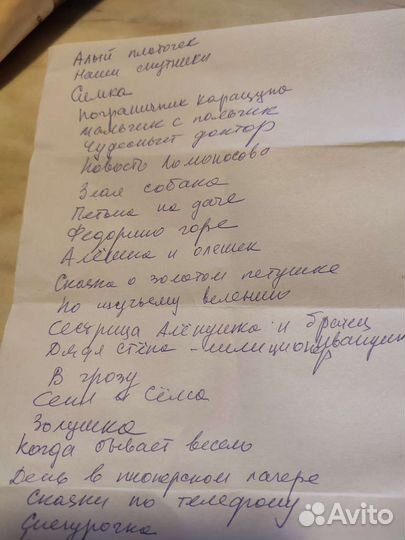 Алый платочек
Наши спутники
Симка
Пограничник Карацупа
мальчик с пальчик
Чудесный доктор
Новость Ломоносова
Злая собака
Петька на даче
Федорино горе
Алёшка и олешек
Сказка о золотом петушке
По щучьему велению
Сестрица Алёнушка и братец Иванушка
Дядя Стёпа - милиционер
В грозу
Сеня и Сёма
Золушка
Когда бывает весело
День в пионерском лагере
Сказки по телефону
Снегурочка
Avito